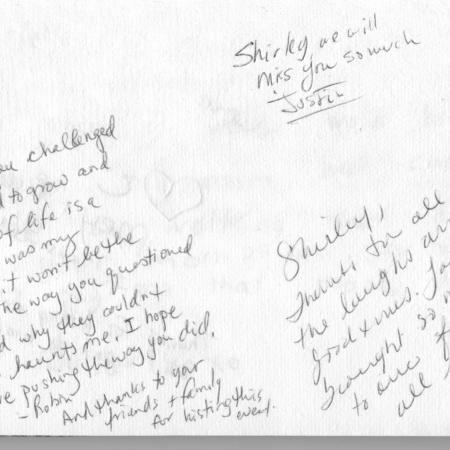 Shirley, we will
miss you so much
Justin
you challenged
to grow and
of life is a
was my
it won't be the
he way you questioned
d why they couldn't
haunts me. I hope
e pushing the way you did.
- Robin
And thanks to your
friends + family
for hosting this
event.
Shirley,
Thanks for all
the laughs an
good times.
brought so m
to our
all